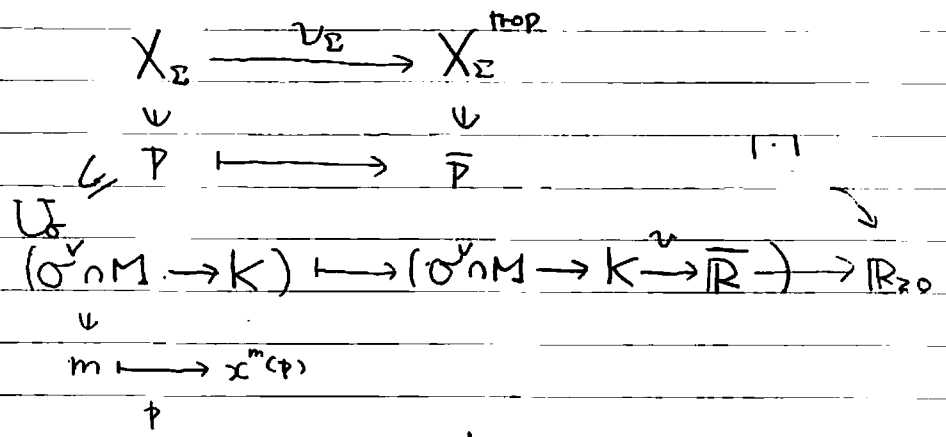 X_Σ —v_Σ→ X_Σ^{trop}
∪ ∪
p ↦ p̄ |·|
U_σ
(σ^∨∩M → K) ↦ (σ^∨∩M → K —v→ ℝ̄) → ℝ_{≥0}
∪
m ↦ x^m(p)
p